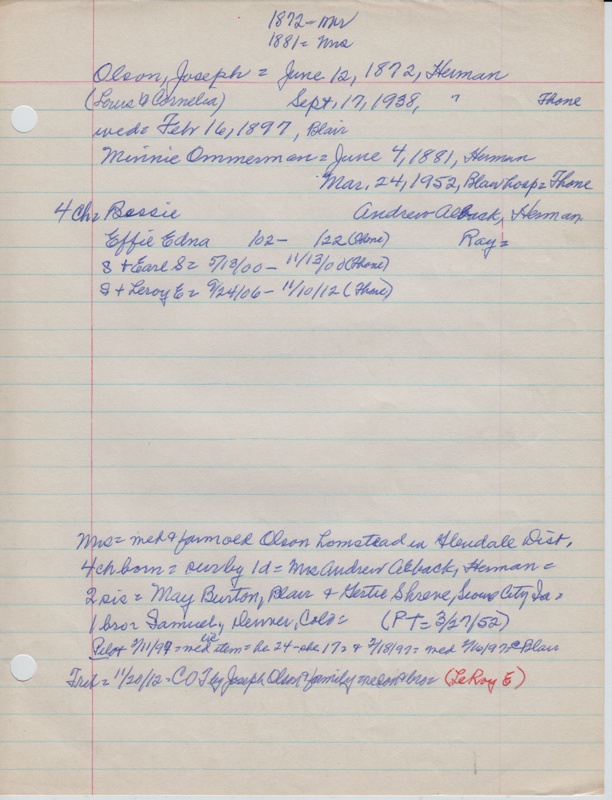 1872 - Mr
1881 = Mrs
Olson, Joseph = June 12, 1872, Herman
(Louis & Cornelia) Sept. 17, 1938, " Fhone
wed = Feb 16, 1897, Blair
Minnie Ommerman = June 4, 1881, Herman
Mar. 24, 1952, Blair hosp = Fhone
4 ch = Bessie Andrew Alback, Herman
Effie Edna /02 - /22 (Fhone) Ray =
S + Earl S = 5/13/00 - 11/13/00 (Fhone)
S + Leroy E = 9/24/06 - 11/10/12 (Fhone)
Mrs = med & farm old Olson homstead in Glendale Dist,
4 ch born = sur by 1 d = Mrs Andrew Alback, Herman =
2 sis = May Burton, Blair & Gertie Shreve, Sioux City Ia =
1 bro = Samuel, Denver, Colo = (P T = 3/27/52)
Pilot 2/11/97 = med lic item = he 24 - she 17 = & 2/18/97 = med 2/16/97 @ Blair
Trib = 11/20/12 = C O T by Joseph Olson & family me son & bro = (LeRoy E)